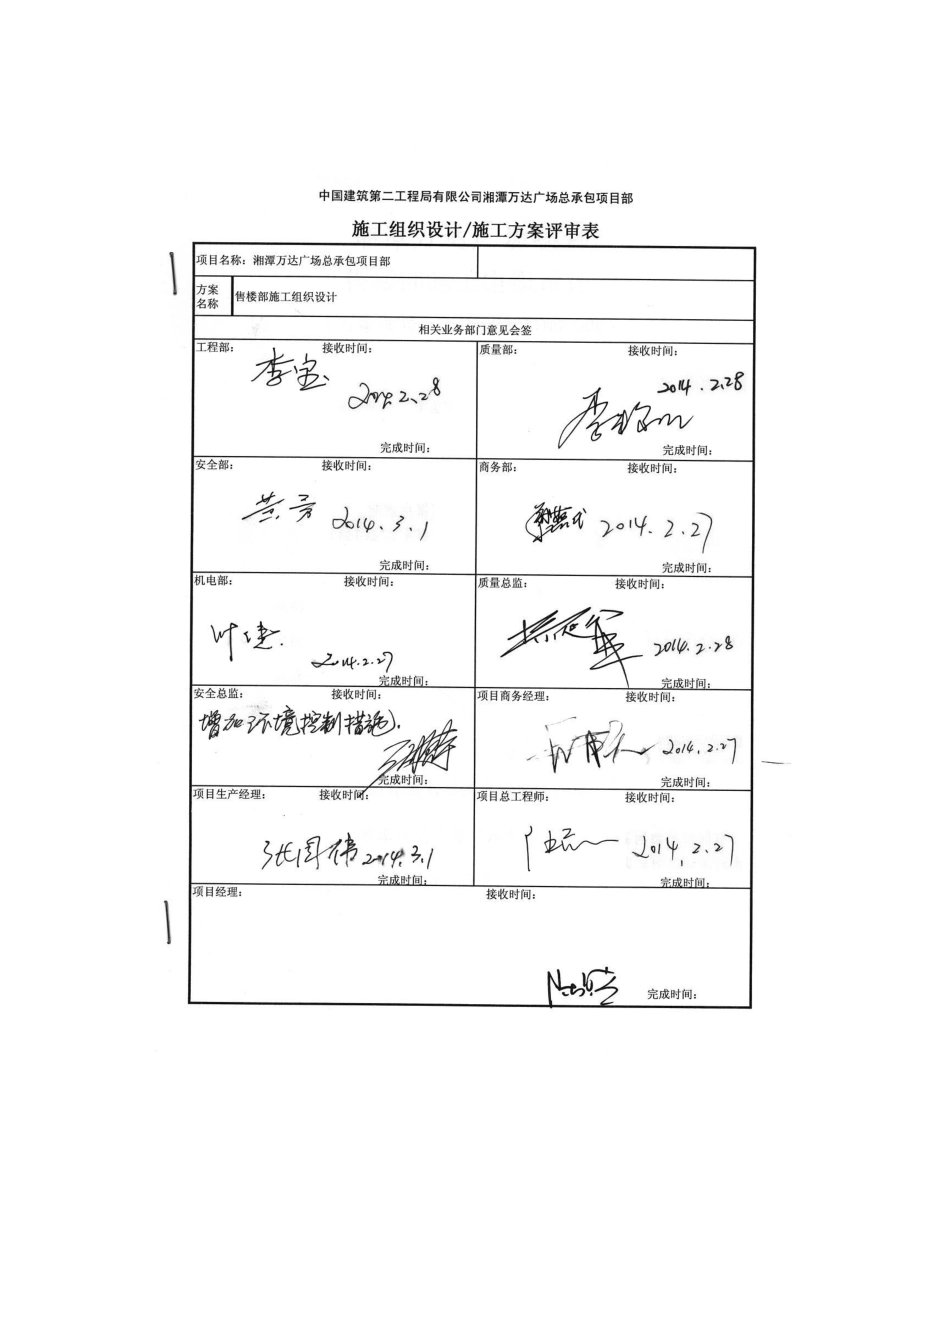 中国建筑第二工程局有限公司湘潭万达广场总承包项目部
施工组织设计/施工方案评审表
项目名称：湘潭万达广场总承包项目部
方案名称 售楼部施工组织设计
相关业务部门意见会签
工程部： 接收时间：
李宝
2014.2.28
完成时间：
质量部： 接收时间：
2014.2.28
李
完成时间：
安全部： 接收时间：
2014.3.1
完成时间：
商务部： 接收时间：
2014.2.27
完成时间：
机电部： 接收时间：
叶建
2014.2.27
完成时间：
质量总监： 接收时间：
2014.2.28
完成时间：
安全总监： 接收时间：
增加环境控制措施.
完成时间：
项目商务经理： 接收时间：
2014.2.27
完成时间：
项目生产经理： 接收时间：
张国伟 2014.3.1
完成时间：
项目总工程师： 接收时间：
2014.2.27
完成时间：
项目经理： 接收时间：
完成时间：